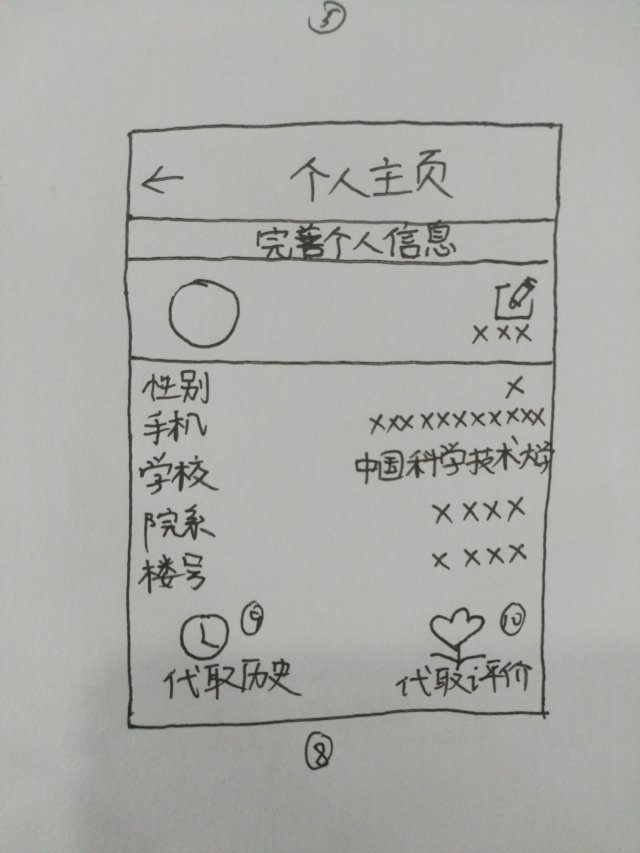 ⑤
← 个人主页
完善个人信息
×××
性别 ×
手机 ×××××××××××
学校 中国科学技术大学
院系 ××××
楼号 ××××
⑨ ⑩
代取历史 代取评价
⑧